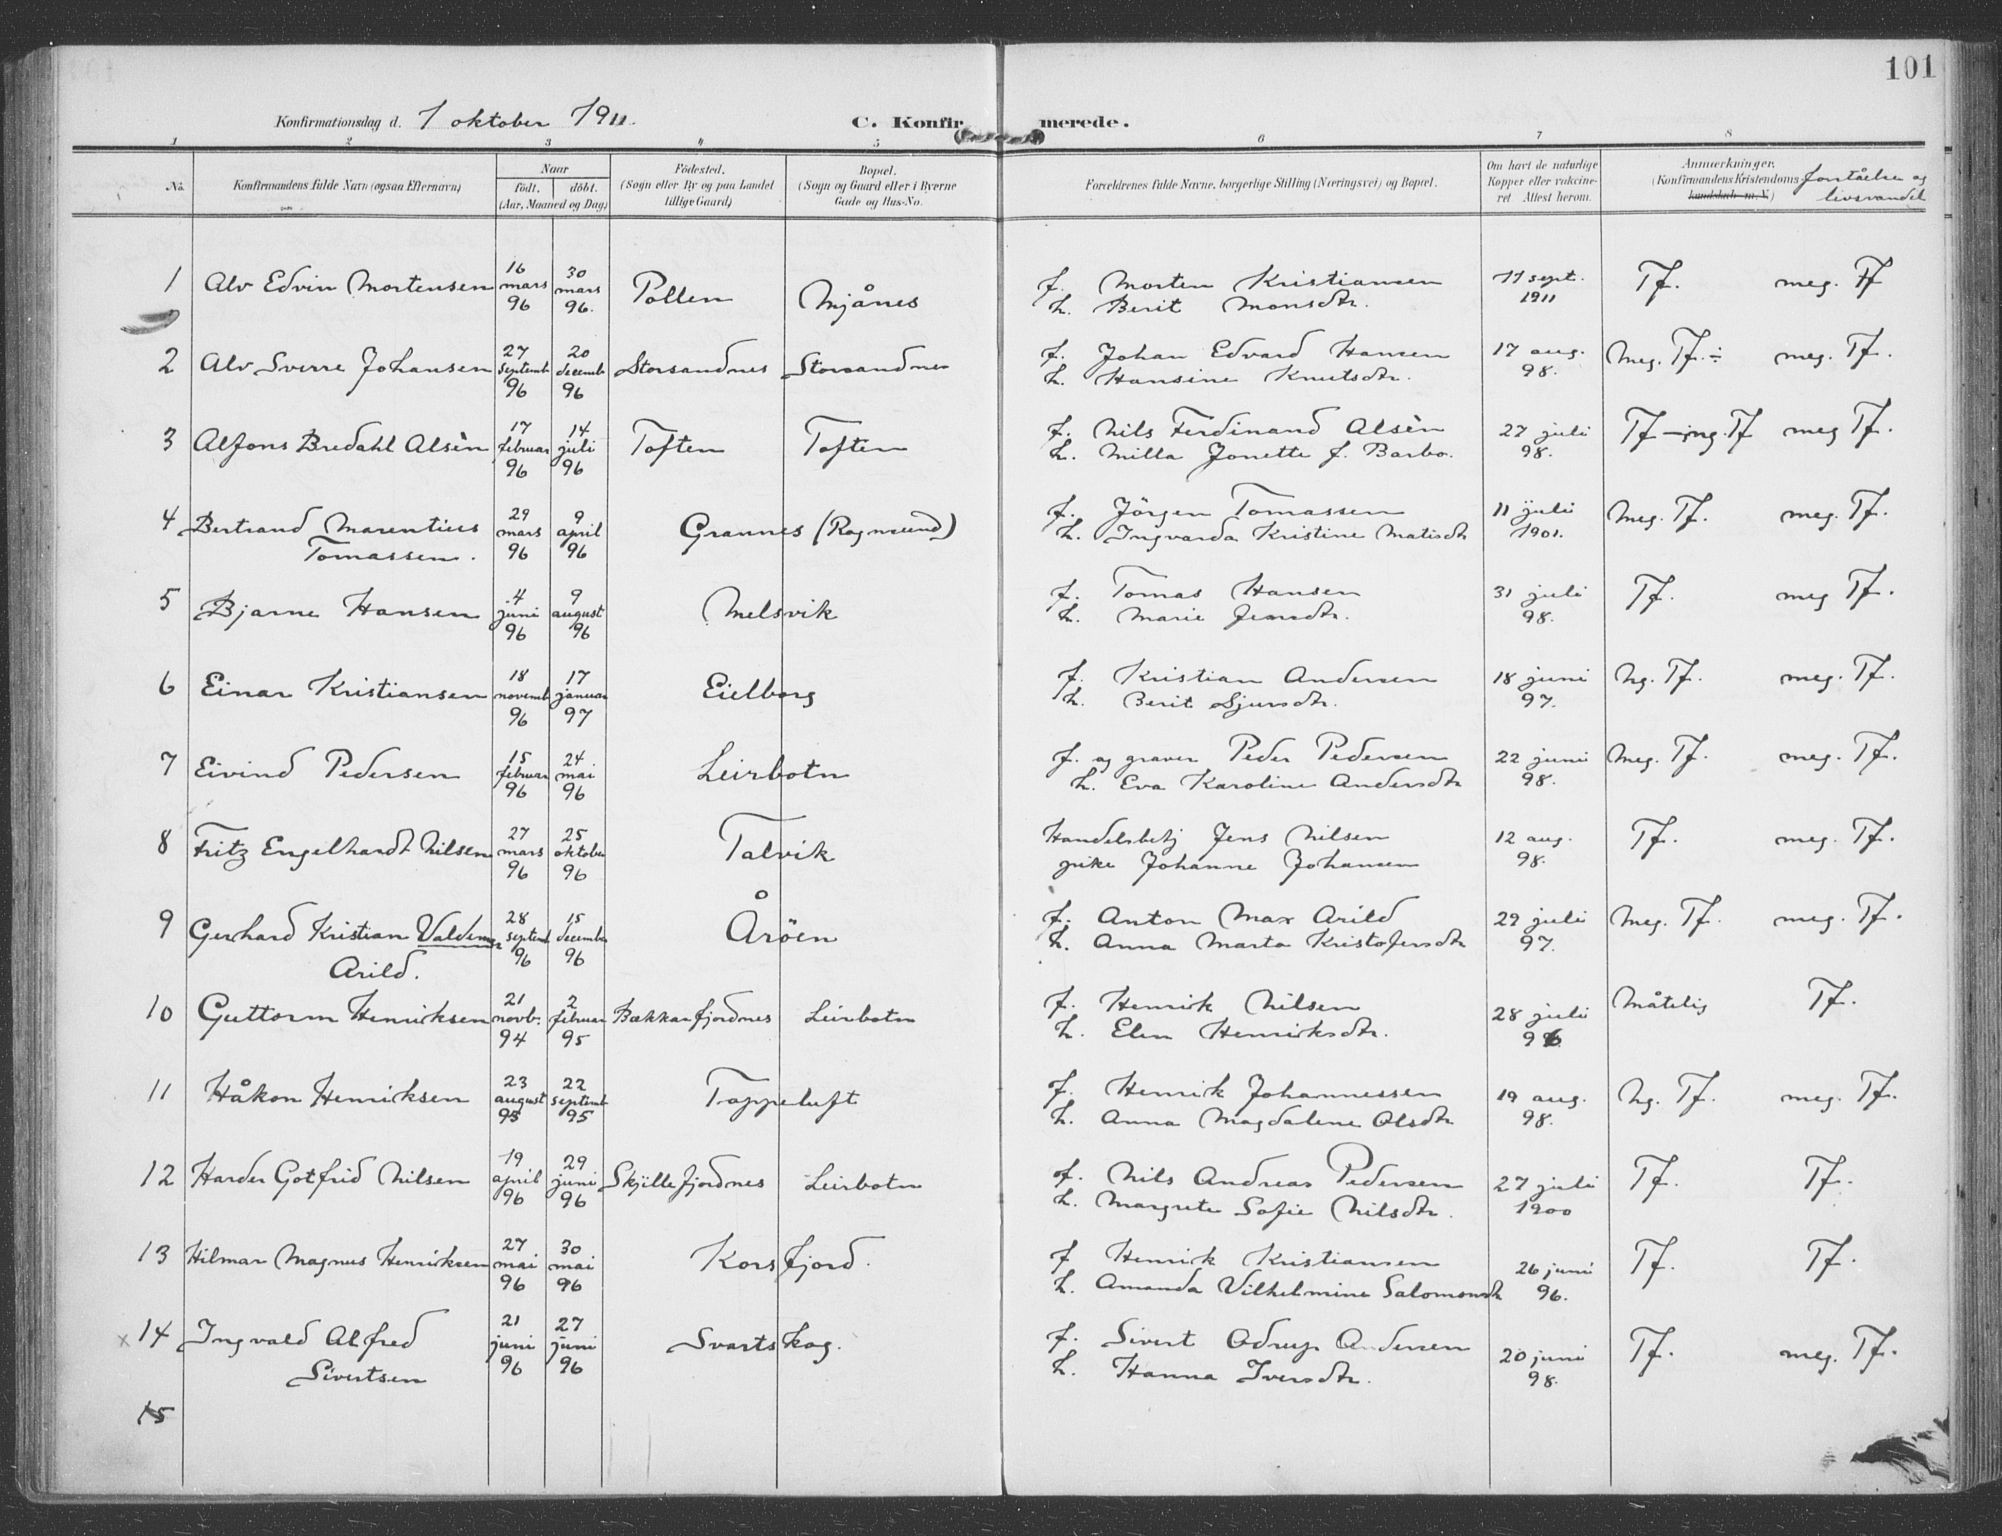 101
Konfirmationsdag d. 1 oktober 1911. C. Konfirmerede.
1 2 3 4 5 6 7 8
No. Konfirmandens fulde Navn (ogsaa Efternavn) Naar födt. döbt. (Aar, Maaned og Dag) Födested. (Sogn eller By og paa Landet tillige Gaard) Bopæl. (Sogn og Gaard eller i Byerne Gade og Hus-No. Forældrenes fulde Navne, borgerlige Stilling (Næringsvei) og Bopæl. Om havt de naturlige Kopper eller vakcineret Attest herom. Anmærkninger. (Konfirmandens Kristendoms kundskab m. V.) forståelse og livsvandel
1 Alv Edvin Mortensen 16 mars 96 30 mars 96. Pollen Mjånes f. Morten Kristiansen 11 sept. 1911 Tf. meg. Tf
h. Berit Monsdtr.
2 Alv Sverre Johansen 27 septemb 96 20 decemb 96 Storsandnes Storsandnes f. Johan Edvard Hansen 17 aug. 98. Meg. Tf. ÷ meg. Tf.
h. Hansine Knutsdtr.
3 Alfons Bredahl Alsèn 17 februar 96 14 juli 96 Toften Toften f. Nils Ferdinand Alsèn 27 juli 98. Tf — mg. Tf meg Tf.
h. Milla Jonette f. Barbo.
4 Bertrand Marentius 29 mars 96 9 april 96 Grannes (Rognsund) f. Jörgen Tomassen 11 juli 1901. Meg. Tf. meg. Tf.
Tomassen. h. Ingvarda Kristine Matisdtr
5 Bjarne Hansen 4 juni 96 9 august 96 Melsvik f. Tomas Hansen 31 juli 98. Tf. meg Tf.
h. Marie Jensdtr.
6 Einar Kristiansen 18 novemb 96 17 januar 97 Eielborg f. Kristian Andersen 18 juni 97. Ng. Tf. meg. Tf.
h. Berit Sjursdtr.
7 Eivind Pedersen 15 februar 96 24 mai 96 Leirbotn f. og graver Peder Pedersen 22 juni 98. Meg. Tf. meg. Tf.
h. Eva Karoline Andersdtr
8 Fritz Engelhardt Nilsen 27 mars 96 25 oktober 96 Talvik Handelsbetj Jens Nilsen 12 aug. 98. Tf. meg. Tf.
pike Johanne Johansen
9 Gerhard Kristian Valdemar 28 septemb 96 15 december 96 Åröen f. Anton Max Arild 29 juli 97. Meg. Tf. meg. Tf.
Arild. h. Anna Marta Kristofersdtr
10 Guttorm Henriksen 21 novb. 94 2 februar 95 Bækkarfjordnes Leirbotn f. Henrik Nilsen 28 juli 96 Måtelig Tf.
h. Elen Henriksdtr.
11 Håkon Henriksen 23 august 95 22 septemb 95 Tappeluft f. Henrik Johannessen 19 aug. 98. Ng. Tf. meg. Tf.
h. Anna Magdalene Olsdtr
12 Harder Gotfrid Nilsen 19 april 96 29 juni 96 Skjillefjordnes Leirbotn f. Nils Andreas Pedersen 27 juli 1900 Tf. Tf.
h. Margrete Sofie Nilsdtr.
13 Hilmar Magnus Henriksen 27 mai 96 30 mai 96 Korsfjord. f Henrik Kristiansen 26 juni 96. Tf. Tf.
h. Amanda Vilhelmine Salomonsdtr
x 14 Ingvald Alfred 21 juni 96 27 juni 96 Svartskog. f. Sivert Odrup Andersen 20 juni 98. Tf. meg. Tf.
Sivertsen h. Hanna Iversdtr.
15